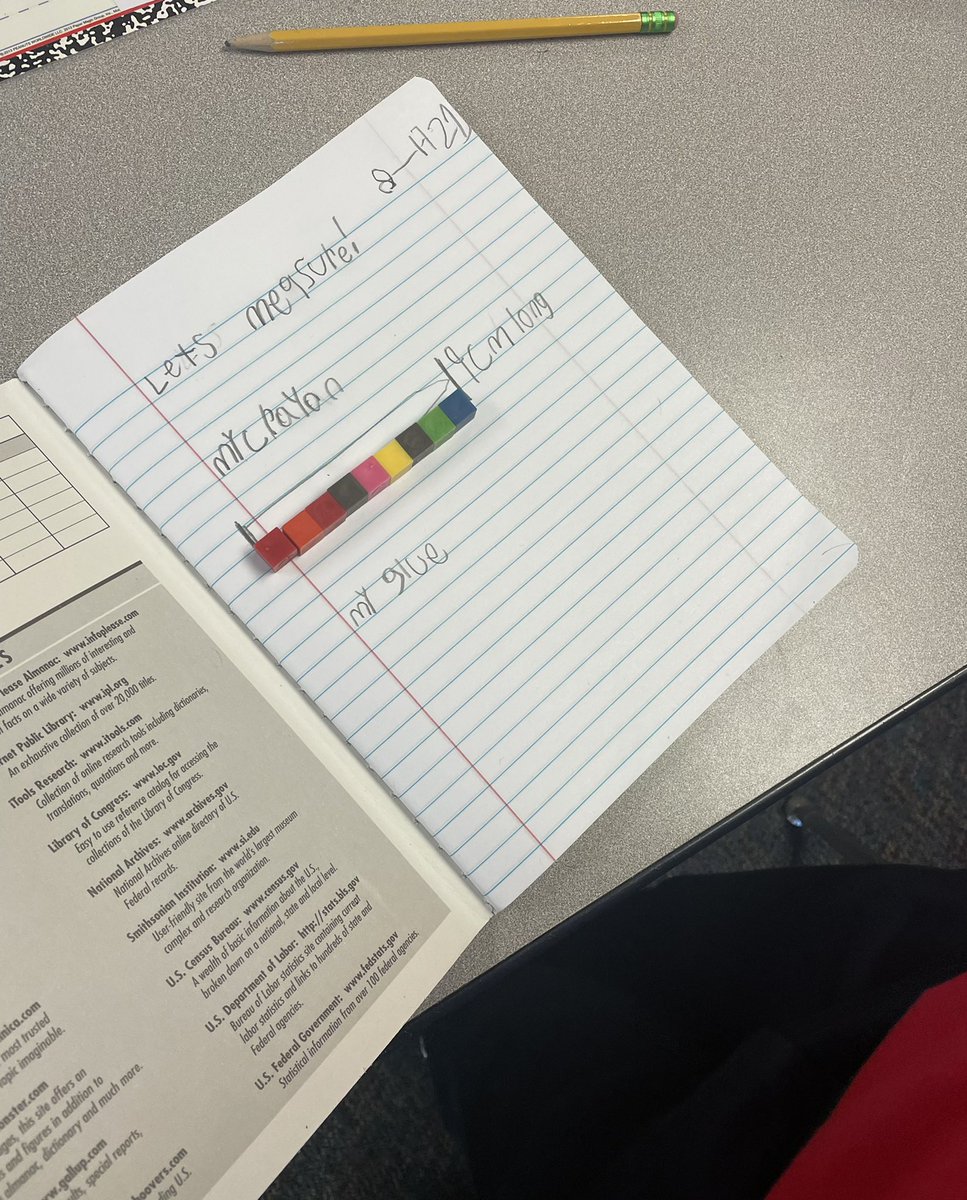 8-17-21
Let's measure!
my crayon
19cm long
my glue
lease Almanac: www.infoplease.com
almanac offering millions of interesting and
facts on a wide variety of subjects.
rnet Public Library: www.ipl.org
An exhaustive collection of over 20,000 titles.
iTools Research: www.itools.com
Collection of online research tools including dictionaries,
translations, quotations and more.
Library of Congress: www.loc.gov
Easy to use reference catalog for accessing the
collections of the Library of Congress.
National Archives: www.archives.gov
National Archives online directory of U.S.
Federal records.
Smithsonian Institution: www.si.edu
User-friendly site from the world's largest museum
complex and research organization.
U.S. Census Bureau: www.census.gov
A wealth of basic information about the U.S.,
broken down on a national, state and local level
U.S. Department of Labor: http://stats.bls.gov
Bureau of Labor statistics site containing current
labor statistics and links to hundreds of state and
Federal agencies.
U.S. Federal Government: www.fedstats.gov
Statistical information from over 100 federal agencies.
nica.com
most trusted
topic imaginable.
onster.com
ages, this site offers an
s and figures in addition to
almanac, dictionary and much more.
w.gallup.com
ults, special reports,
hoovers.com
ding U.S.